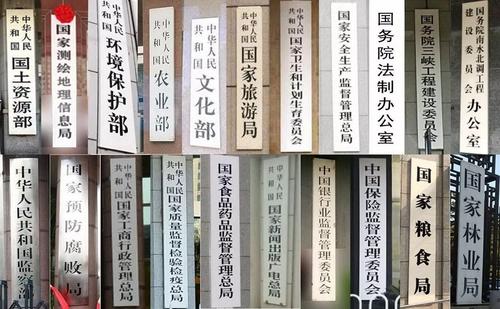 中华人民
共和国
国土资源部
国家测绘地理信息局
中华人民
共和国
环境保护部
中华人民
共和国
农业部
中华人民
共和国
文化部
中华人民
共和国
国家旅游局
中华人民
共和国
国家卫生和计划生育委员会
国家安全生产监督管理总局
国务院法制办公室
国务院三峡工程
建设委员会
国务院南水北调工程
建设委员会
办公室
中华人民共和国监察部
国家预防腐败局
中华人民
共和国
国家工商行政管理总局
中华人民
共和国
国家质量监督检验检疫总局
国家食品药品监督管理总局
中华人民
共和国
国家新闻出版广电总局
中国银行业监督管理委员会
中国保险监督管理委员会
国家粮食局
国家林业局